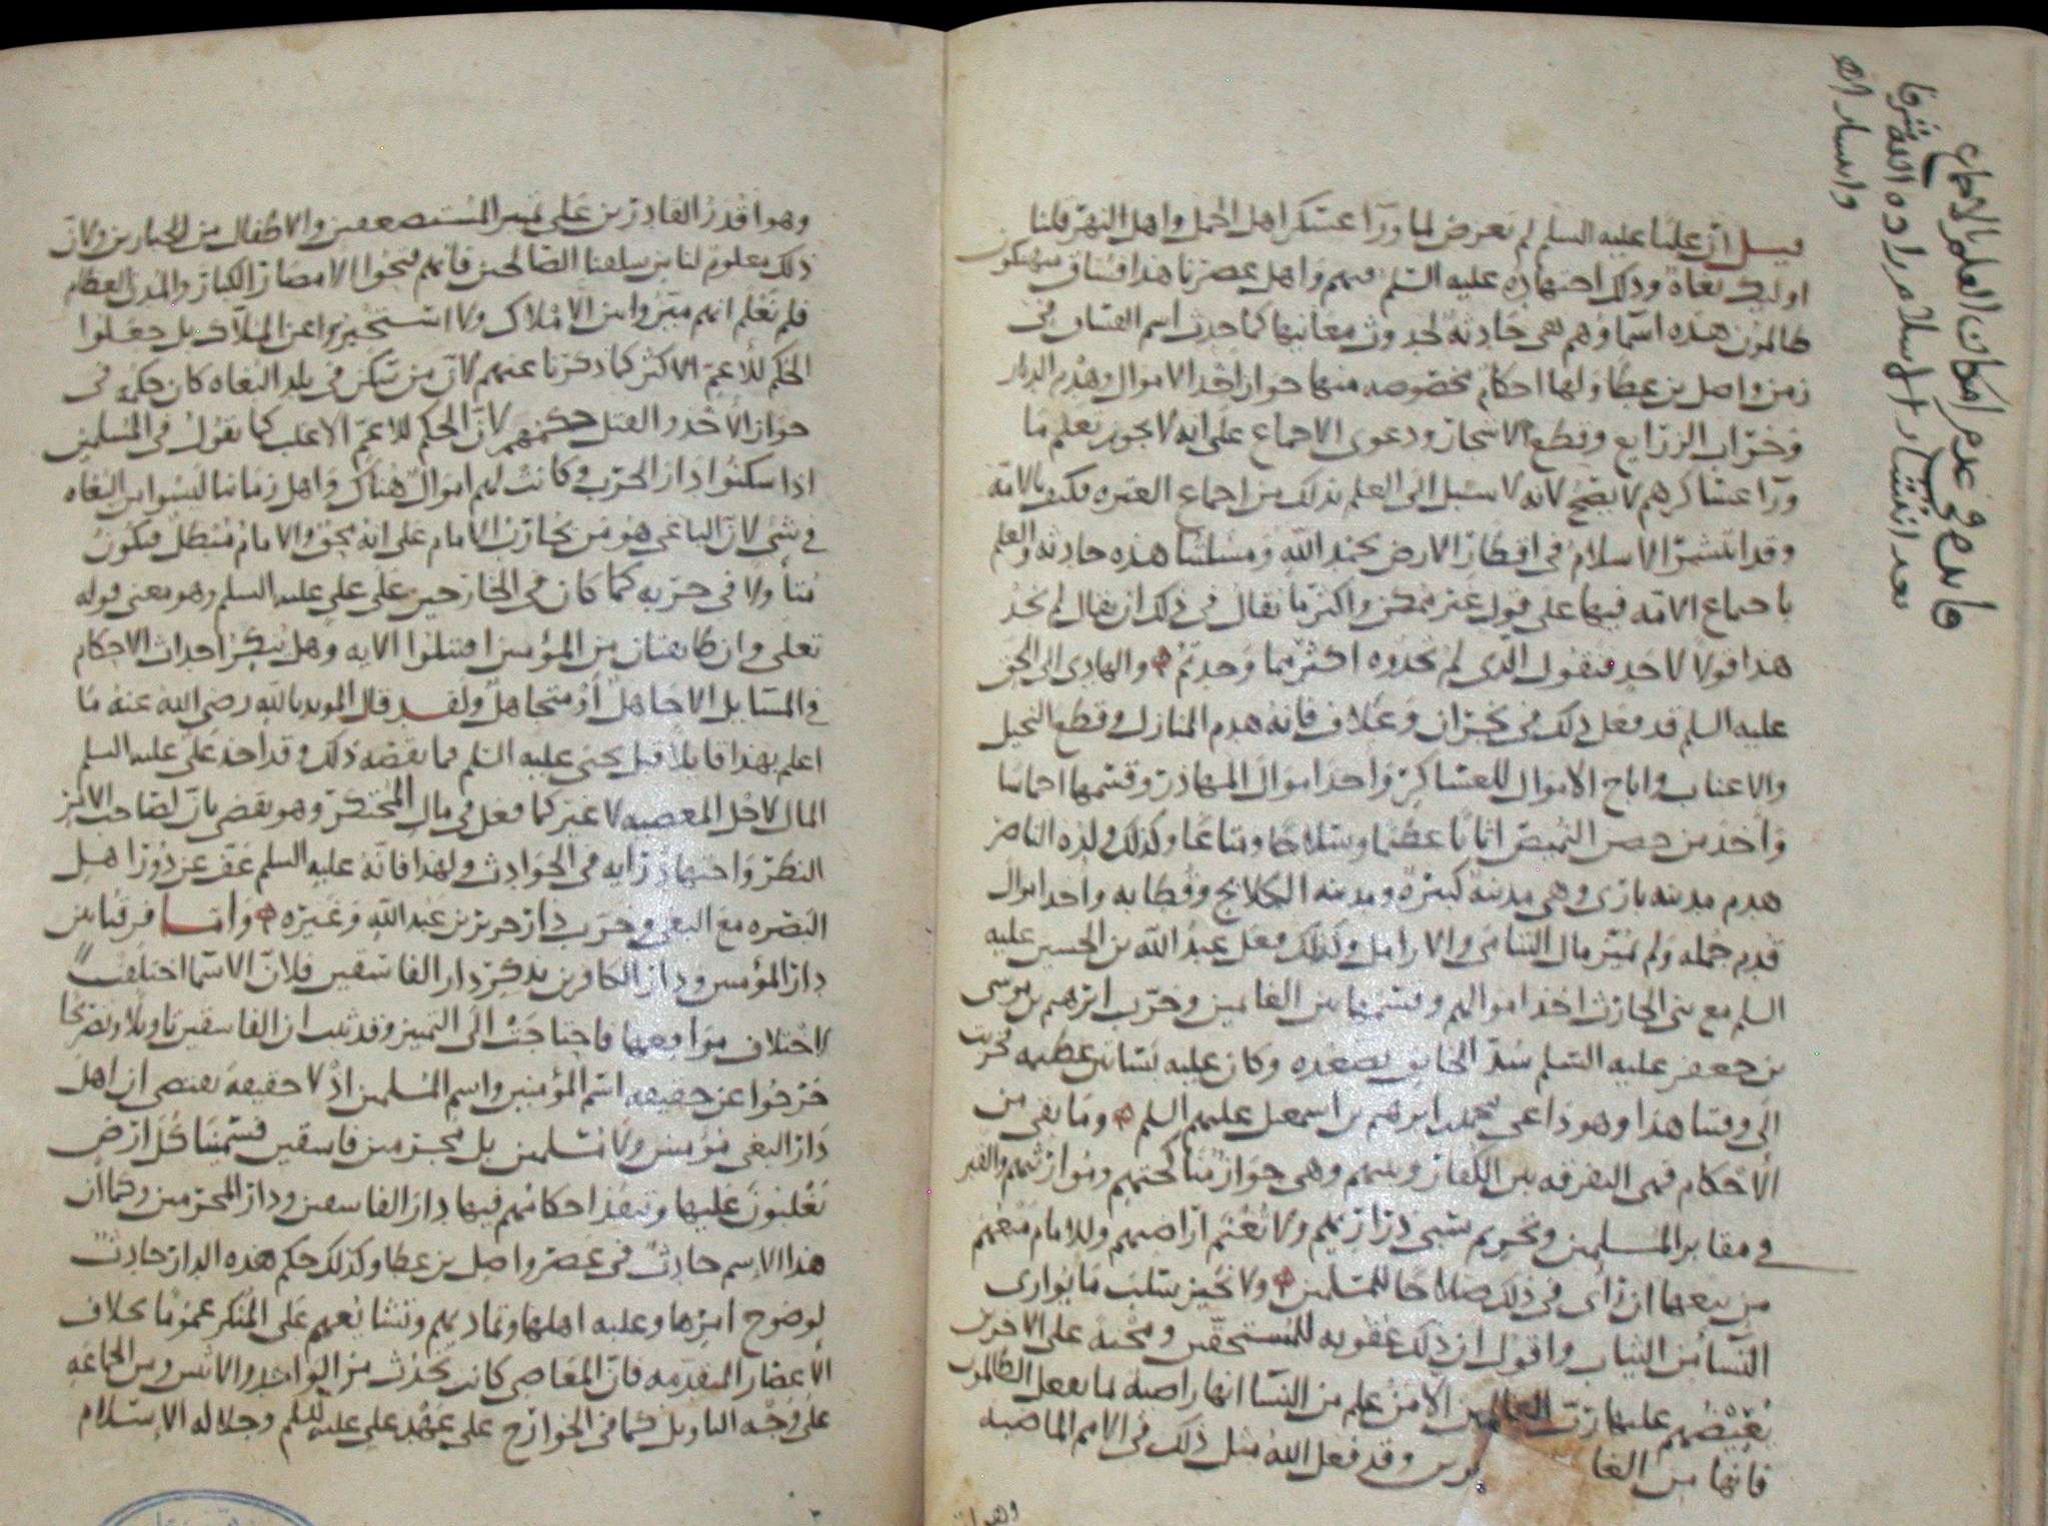 فائدة في عدم امكان العلم بالاجماع
بعد انتشار الاسلام زاده الله شرفا
قيل ان عليا عليه السلم لم تعرض لما ورآ عسكر اهل الجمل واهل النهر قلنا
اوليك بغاة وذلك اجتهاده عليه السلم فيهم واهل عصرنا هذا فساق متهتكون
ظالمون هذه اسماوهم هي حادثة لحدوث معانيها كما حدث اسم الفساق في
زمن واصل بن عطا ولها احكام مخصوصه منها جواز اخذ الاموال وهدم الديار
وخراب الزرايع وقطع الاشجار ودعوى الاجماع على انه لا يجوز تعلم ما
ورآ عساكرهم لا يصح لانه لا سبيل الى العلم بذلك من اجماع العتره فكيف بالامة
وقد انتشر الاسلام في اقطار الارض بحمد الله ومسلتنا هذه حادثه والعلم
باجماع الامه فيها على قول غير ممكن واكثر ما يقال في ذلك ان يقال لم نجد
هذا قولا لاحد فنقول الذي لم تجدوه اكثر مما وجدتم والهادي الى الحق
عليه السلم قد فعل ذلك في نجران وعلاف فانه هدم المنازل وقطع النخيل
والاعناب واباح الاموال للعساكر واخذ اموال المهاذر وقسمها اخماسا
واخذ من حصن اثاثا عظيما وسلاحا ومتاعا وكذلك ولده الناصر
هدم مدينه باري وهي مدينة كبيرة ومدينه الكلابح وقطابه واخذ اموال
قدم جمله ولم تميز مال اليتامى والارامل وكذلك فعل عبد الله بن الحسين عليه
السلم مع بني الحارث اخذ اموالهم وقسمها بين الغانمين وخرب ابرهيم بن موسى
بن جعفر عليه السلم سد الخانق بصعده وكان عليه بساتين عظيمه فخربت
الى وقتنا هذا وهو داعي محمد بن ابرهيم بن اسمعيل عليهم السلم وما بقي من
الاحكام فهي التفرقه بين الكفار وبينهم وهي جواز مناكحتهم وموارثتهم والقبر
في مقابر المسلمين وتحريم سبي ذراريهم ولا تغنم اراضيهم وللامام منعهم
من بيعها ان راى في ذلك صلاحا للمسلمين ولا نجيز سلب ما يواري
النسا من الثياب واقول ان ذلك عقوبه للمستحقين ومحنة على الاخرين
عليها رب العالمين الا من علم من النسا انها راضيه بما يفعل الظالمون
فانها من وقد فعل الله مثل ذلك في الامم الماضيه
وهو
وهو اقدر القادرين على تمييز المستضعفين والاطفال من الجبارين ولان
ذلك معلوم لنا من سلفنا الصالحين فانهم فتحوا الامصار الكبار والمدن العظام
فلم نعلم انهم ميزوا بين الاملاك ولا استخبروا عن الملاك بل جعلوا
الحكم للاعم الاكثر كما ذكرنا عنهم لان من سكن في بلد البغاه كان حكمه في
جواز الاخذ والقتل حكمهم لان الحكم للاعم الاغلب كما نقول في المسلمين
اذا سكنوا دار الحرب وكانت لهم اموال هناك واهل زماننا ليسوا من البغاه
في شي لان الباغي هو من يحارب الامام على انه محق والامام مبطل فيكون
متاولا في حربه كما كان في الخارجين على علي عليه السلم وهو معنى قوله
تعلى وان طايفتان من المؤمنين اقتتلوا الايه وهل ينكر احداث الاحكام
في المسايل الا جاهل او متجاهل ولقد قال المويد بالله رضي الله عنه ما
اعلم بهذا قايلا قبل يحيى عليه السلم فما نقضه ذلك وقد اخذ علي عليه السلم
المال لاجل المعصيه لا غير كما فعل في مال المحتكر وهو يقضي بان لصاحب الامر
النظر واجتهاد رايه في الحوادث ولهذا فانه عليه السلم عف عن دور اهل
البصره مع البغي وخرب دار جرير بن عبد الله وغيره وانما فرقنا بين
دار المؤمنين ودار الكافرين بذكر دار الفاسقين فلان الاسما اختلفت
لاختلاف مواقعها فاحتاجت الى التمييز وقد ثبت ان الفاسقين تاويلا وتصريحا
خرجوا عن حقيقه اسم المؤمنين واسم المسلمين اذ لا حقيقة تقتضي ان اهل
دار البغي مؤمنين ولا مسلمين بل مجرمين فاسقين فسمينا كل ارض
تغلبون عليها وتنفذ احكامهم فيها دار الفاسقين ودار المجرمين وكما ان
هذا الاسم حادث في عصر واصل بن عطا وكذلك حكم هذه الدار حادث
لوضوح امرها وغلبه اهلها وتماديهم وتتابعهم على المنكر عموما بخلاف
الاعصار المتقدمه فان المعاصي كانت تحدث من الواحد والاثنين ومن الجماعه
على وجه التاويل كما في الخوارج على عهد علي عليه السلم وجلاله الاسلام